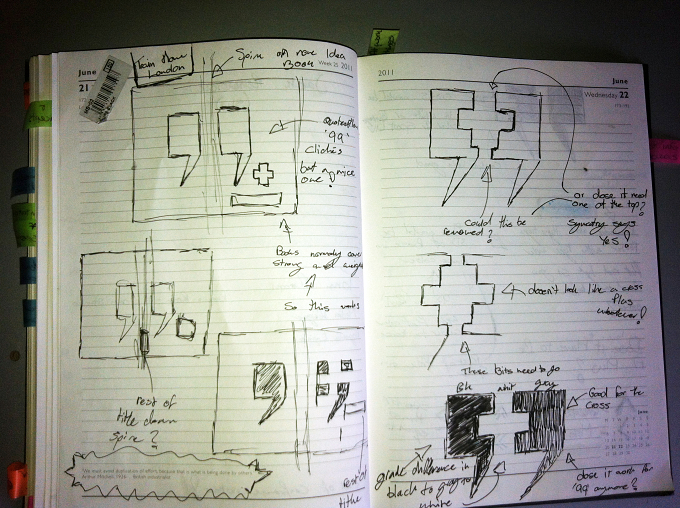 June
21
Week 25 2011
Team Nome
London
Spire on new Idea
Book
Quotation
'99'
Clichés
but a nice
one!
Books normally
strong and
So this works
rest of
title down
spire?
We must avoid duplication of effort, because that is what is being done by others.
rest of
title
2011
June
Wednesday 22
or dose it need
one at the top?
Symetry says
Yes!
Could this be
removed?
doesn't look like a cross
Plus
whatever!
These Bits need to go
Blk whit grey
Good for the
cross
June
grade difference in
black to grey
white
dose it work the
'99 anymore?